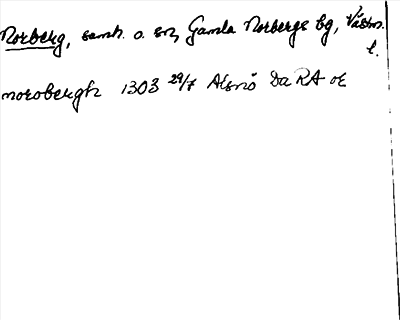 Norberg, samh. o. sn, Gamla Norbergs bg, Västm. l.
norobergh 1303 29/7 Alsnö Da RA or